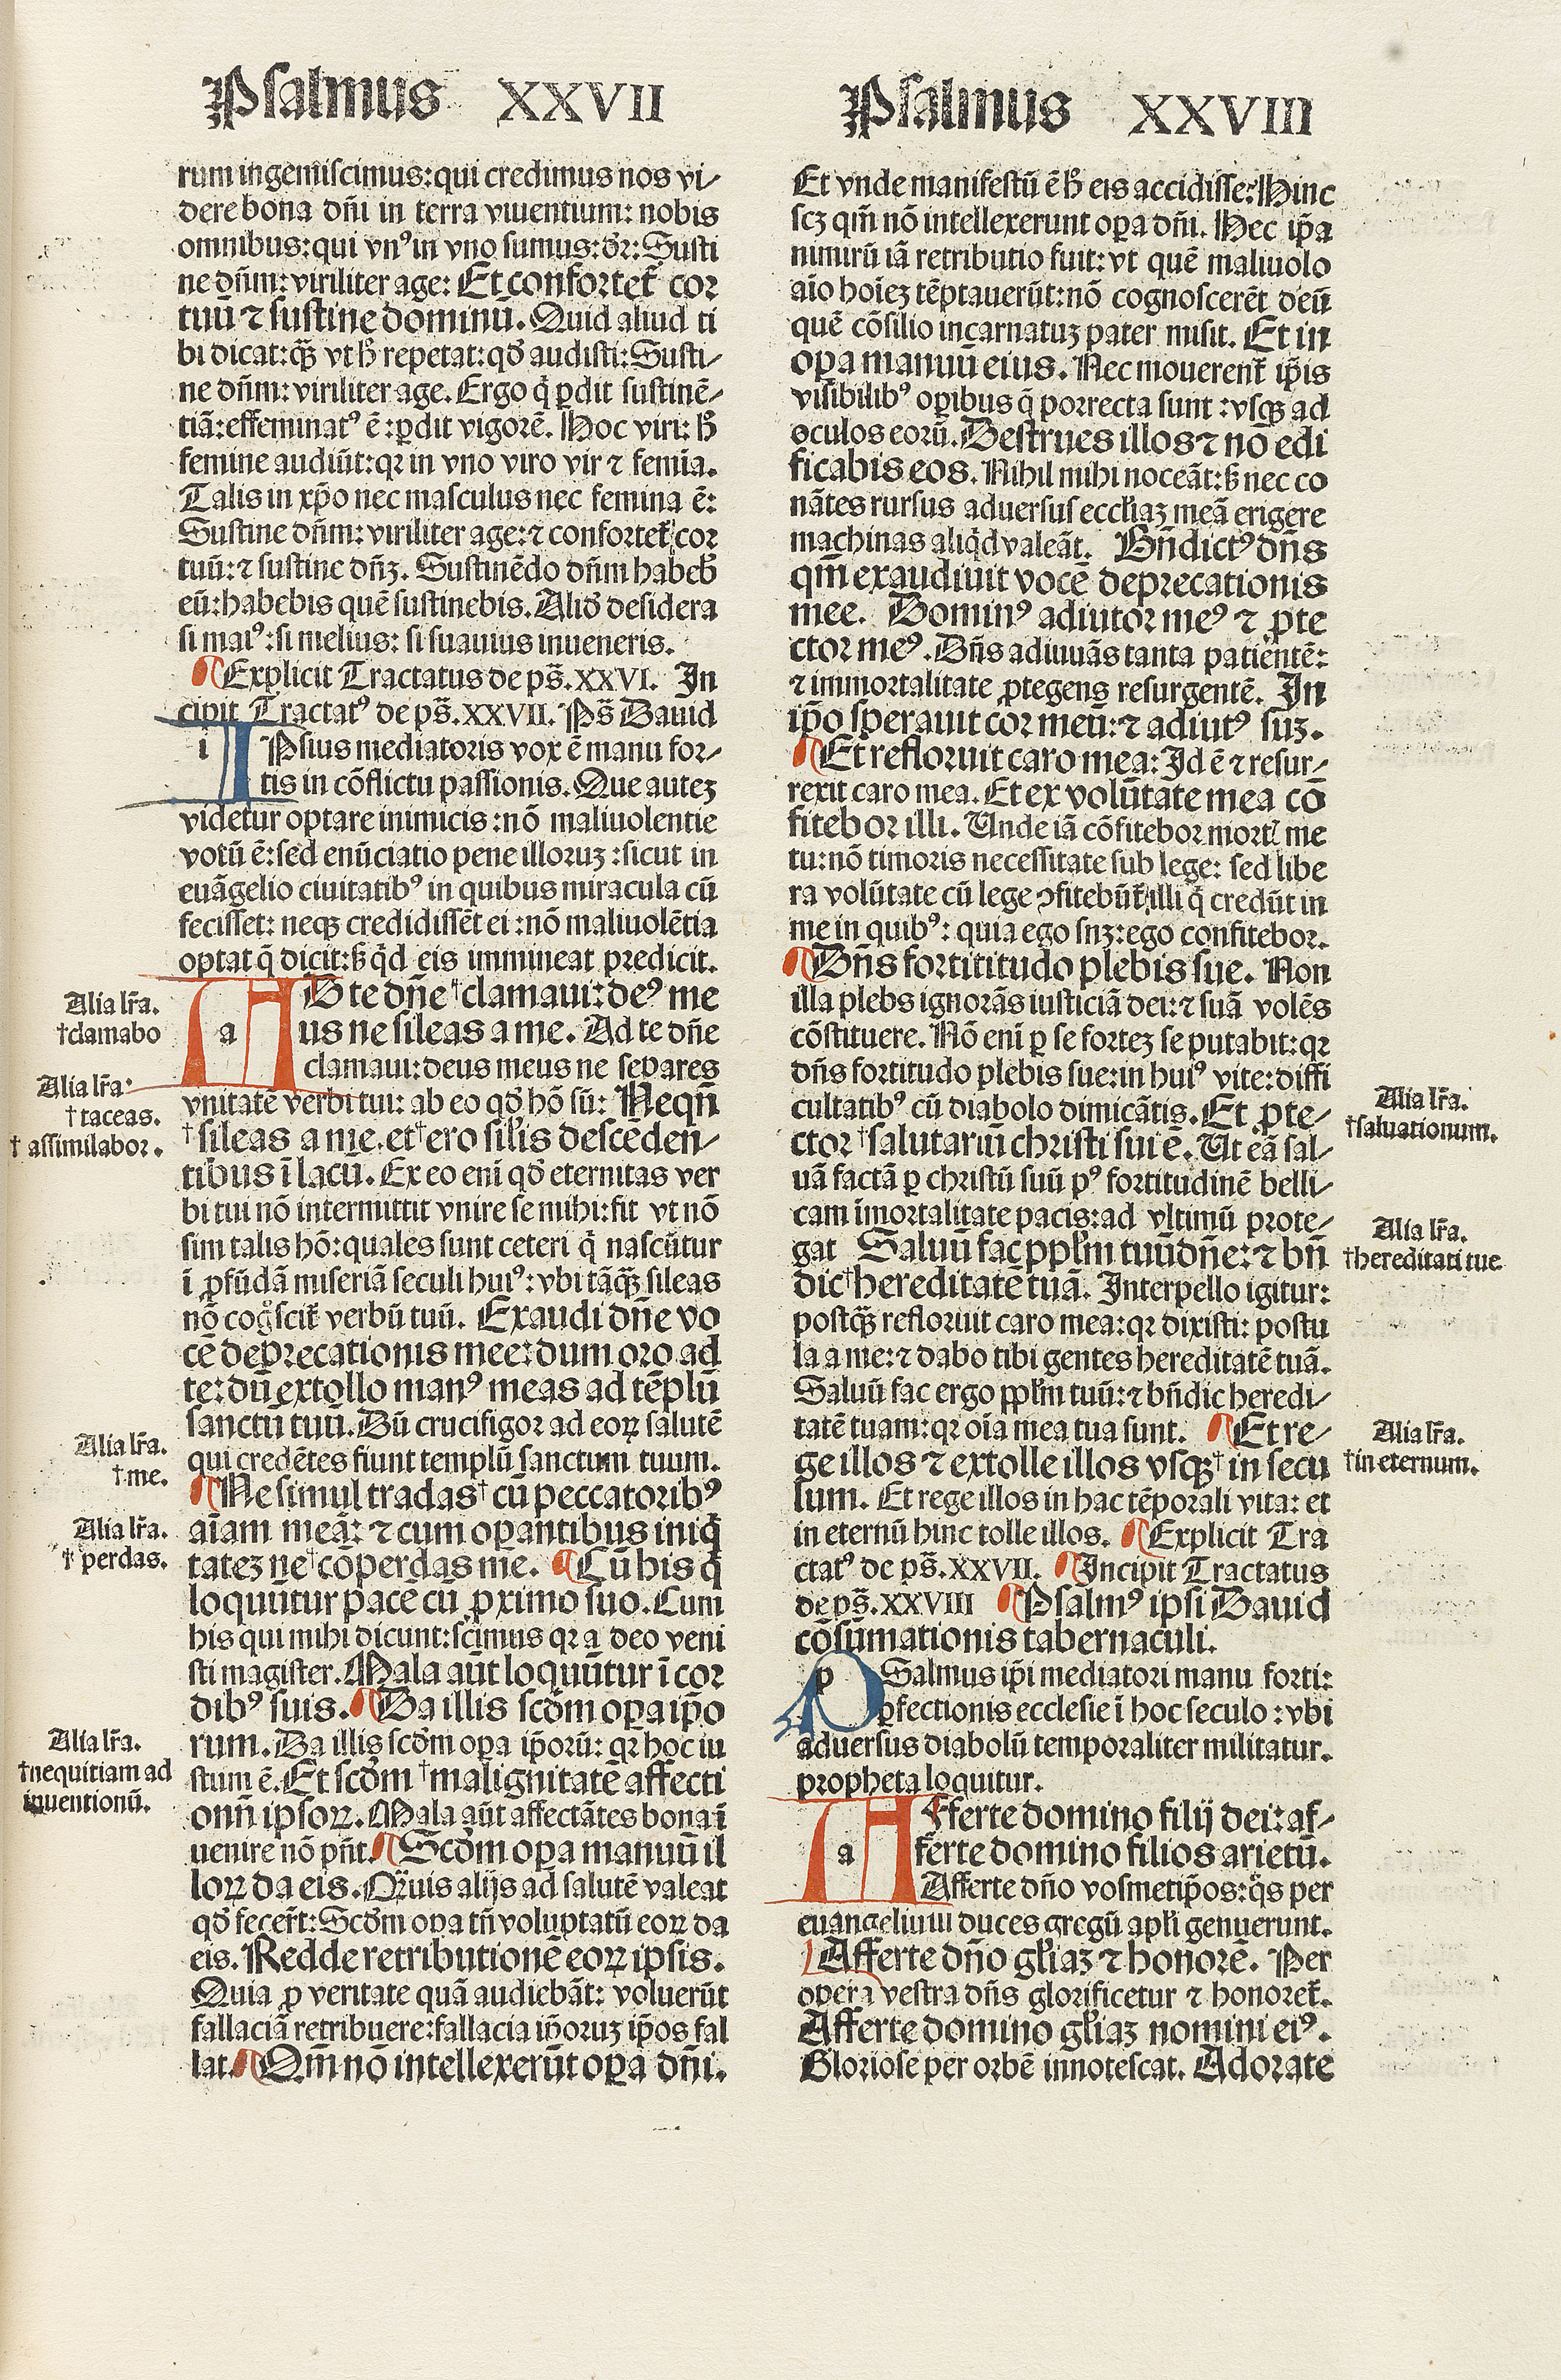 Psalmus XXVII
rum ingemiscimus: qui credimus nos vi⸗
dere bona dñi in terra viuentium: nobis
omnibus: qui vnꝰ in vno sumus: dr̃: Susti
ne dñm: viriliter age: Et confortet᷑ cor
tuū ⁊ sustine dominū. Quid aliud ti
bi dicat: qꝫ̃ vt h̵ repetat: qd̵ audisti: Susti⸗
ne dñm: viriliter age. Ergo q̇ ꝑdit sustinē⸗
tiā: effeminatꝰ ē: ꝑdit vigorē. Hoc viri: h̵
femine audiūt: qꝛ in vno viro vir ⁊ femīa.
Talis in xp̄o nec masculus nec femina ē:
Sustine dñm: viriliter age: ⁊ confortet᷑ cor
tuū: ⁊ sustine dñꝫ. Sustinēdo dñm habeb̵
eū: habebis quē sustinebis. Aliд desidera
si maiꝰ: si melius: si suauius inueneris.
¶ Explicit Tractatus de ps̄. XXVI. In
cipit Tractatꝰ de ps̄. XXVII. Ps̄ Dauid
i Psius mediatoris vox ē manu for⸗
tis in cōflictu passionis. Que auteꝫ
videtur optare inimicis: nō maliuolentie
votū ē: sed enūciatio pene illoruꝫ: sicut in
euāgelio ciuitatibꝰ in quibus miracula cū
fecisset: neqꝫ credidissēt ei: nō maliuolētia
optat q̄ dicit: s̵ qͥd eis immineat predicit.
Alia lr̄a.
†clamabo
a AD te dñe †clamaui: deꝰ me
us ne sileas a me. Ad te dñe
clamaui: deus meus ne separes
Alia lr̄a
†taceas.
†assimilabor.
vnitatē verbi tui: ab eo qd̵ hō sū: Neqñ
†sileas a me. et †ero sil̵is descēden⸗
tibus ī lacū. Ex eo enī qd̵ eternitas ver
bi tui nō intermittit vnire se mihi: fit vt nō
sim talis hō: quales sunt ceteri q̇ nascūtur
ī ꝓfūdā miseriā seculi huiꝰ: vbi tāqꝫ̃ sileas
nō cogͦscit᷑ verbū tuū. Exaudi dñe vo
cē deprecationis mee: dum oro ad
te: dū extollo manꝰ meas ad tēplū
sanctū tuū. Dū crucifigor ad eoꝝ salutē
qui credētes fiunt templū sanctum tuum.
Alia lr̄a.
†me.
¶ Ne simul tradas † cū peccatoribꝰ
Alia lr̄a.
†perdas.
aīam meā: ⁊ cum oꝑantibus iniqͥ
tateꝫ ne †cōperdas me. ¶ Cū his q̇
loquūtur pacē cū ꝓximo suo. Cum
his qui mihi dicunt: scimus qꝛ a deo veni
sti magister. Mala aūt loquūtur ī cor
dibꝰ suis. ¶ Da illis scd̵m oꝑa ip̄o
rum. Da illis scd̵m oꝑa ip̄orū: qꝛ hoc iu
Alia lr̄a.
†nequitiam ad
inuentionū.
stum ē. Et scd̵m †malignitatē affecti
onū ipsoꝝ. Mala aūt affectātes bona ī
uenire nō pñt. ¶ Scd̵m oꝑa manuū il
loꝝ da eis. Qꝛuis alijs ad salutē valeat
qd̵ fecer̄t: Scd̵m oꝑa tñ voluptatū eoꝝ da
eis. Redde retributionē eoꝝ ipsis.
Quia ꝓ veritate quā audiebāt: voluerūt
fallaciā retribuere: fallacia ip̄oruꝫ ip̄os fal
lat. ¶ Qm̄ nō intellexerūt oꝑa dñi.
Psalmus XXVIII
Et vnde manifestū ē h̵ eis accidisse? Hinc
scꝫ qm̄ nō intellexerunt oꝑa dñi. Hec ip̄a
nimirū iā retributio fuit: vt quē maliuolo
aīo hoīeꝫ tēptauerūt: nō cognoscerēt deū
quē cōsilio incarnatuꝫ pater misit. Et in
oꝑa manuū eius. Nec mouerent᷑ ip̄is
visibilibꝰ oꝑibus q̄ porrecta sunt: vsqꝫ ad
oculos eorū. Destrues illos ⁊ nō edi
ficabis eos. Nihil mihi noceāt: s̵ nec co
nātes rursus aduersus eccl̵iaꝫ meā erigere
machinas aliqͥd valeāt. Bñdictꝰ dñs
qm̄ exaudiuit vocē deprecationis
mee. Dominꝰ adiutor meꝰ ⁊ ꝓte
ctor meꝰ. Dñs adiuuās tanta patientē:
⁊ immortalitate ꝓtegens resurgentē. In
ip̄o sperauit cor meū: ⁊ adiutꝰ suꝫ.
¶ Et refloruit caro mea: Id ē ⁊ resur⸗
rexit caro mea. Et ex volūtate mea cō
fitebor illi. Unde iā cōfitebor mortꝭ me
tu: nō timoris necessitate sub lege: sed libe
ra volūtate cū lege ꝯfitebūt᷑ illi q̇ credūt in
me in quibꝰ: quia ego suꝫ: ego confitebor.
¶ Dñs fortititudo plebis sue. Non
illa plebs ignorās iusticiā dei: ⁊ suā volēs
cōstituere. Nō enī ꝑ se forteꝫ se putabit: qꝛ
dñs fortitudo plebis sue: in huiꝰ vite: diffi
cultatibꝰ cū diabolo dimicātis. Et ꝓte⸗
Alia lr̄a.
†saluationum.
ctor †salutariū christi sui ē. Ut eā sal⸗
uā factā ꝑ christū suū pꝰ fortitudinē belli⸗
cam īmortalitate pacis: ad vltimū prote⸗
Alia lr̄a.
†hereditati tue
gat Saluū fac ppl̵m tuū dñe: ⁊ bñ
dic †hereditatē tuā. Interpello igitur:
postqꝫ̃ refloruit caro mea: qꝛ dixisti: postu
la a me: ⁊ dabo tibi gentes hereditatē tuā.
Saluū fac ergo ppl̵m tuū: ⁊ bñdic heredi⸗
tatē tuam: qꝛ oīa mea tua sunt. ¶ Et re⸗
Alia lr̄a.
†in eternum.
ge illos ⁊ extolle illos vsqꝫ †in secu
lum. Et rege illos in hac tēporali vita: et
in eternū hinc tolle illos. ¶ Explicit Tra
ctatꝰ de ps̄. XXVII. ¶ Incipit Tractatus
de ps̄. XXVIII ¶ Psalmꝰ ipsi Dauid
cōsūmationis tabernaculi.
p Salmus ip̄i mediatori manu forti:
ꝑfectionis ecclesie ī hoc seculo: vbi
aduersus diabolū temporaliter militatur.
propheta loquitur.
a Afferte domino filij dei: af⸗
ferte domino filios arietū.
Afferte dño vosmetip̄os: qͦs per
euangelium duces gregū apl̵i genuerunt.
Afferte dño gl̵iaꝫ ⁊ honorē. Per
opera vestra dñs glorificetur ⁊ honoret᷑.
Afferte domino gl̵iaꝫ nomini eiꝰ.
Gloriose per orbē innotescat. Adorate